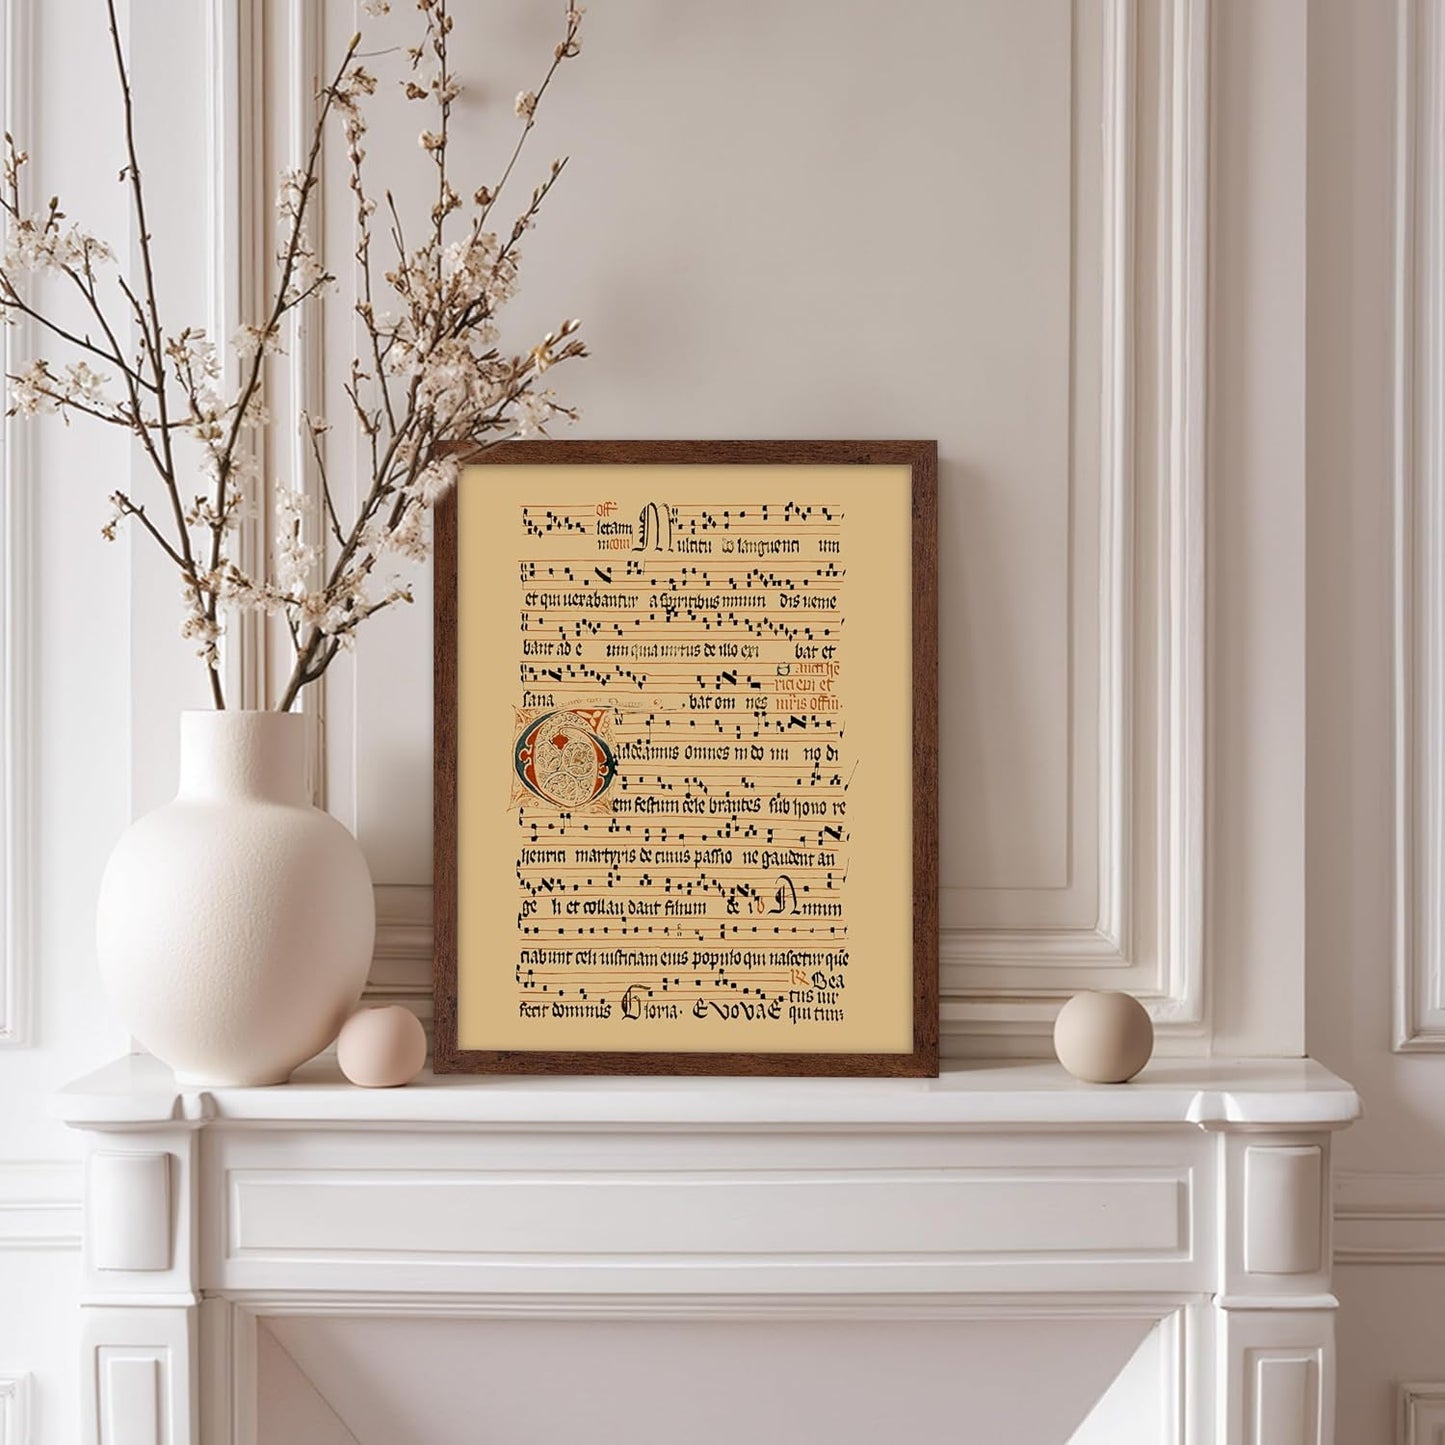 off
letam
m com Multitu do languenti um
et qui uexabantur a spiritibus inmun dis uenie
bant ad e um quia uirtus de illo exi bat et
sana bat om nes
Sancti he
rici epi et
mris offm.
Gaudeamus omnes in do mi no di
em festum cele brantes sub hono re
henrici martyris de cuius passio ne gaudent an
ge li et collau dant filium de i v Annun
ciabunt celi iusticiam eius populo qui nascetur que
fecit dominus Gloria. EVOVAE
Bea
tus uir
qui